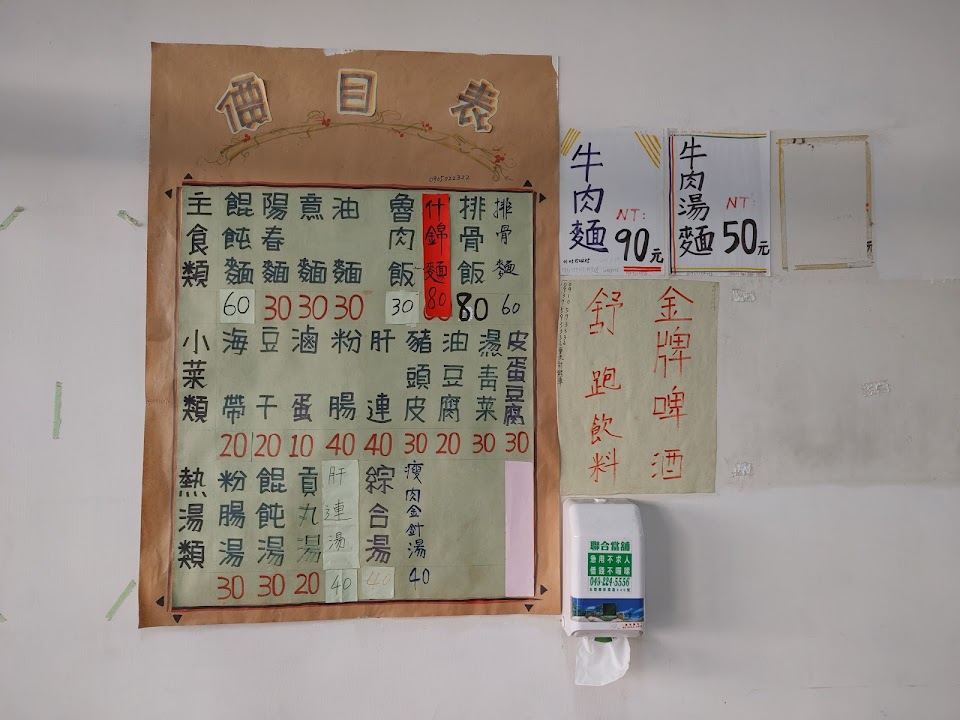 價目表
0905022322
主食類
餛飩麵 60
陽春麵 30
意麵 30
油麵 30
魯肉飯 30
什錦麵 80
排骨飯 80
排骨麵 60
小菜類
海帶 20
豆干 20
滷蛋 10
粉腸 40
肝連 40
豬頭皮 30
油豆腐 20
燙青菜 30
皮蛋豆腐 30
熱湯類
粉腸湯 30
餛飩湯 30
貢丸湯 20
肝連湯 40
綜合湯 40
瘦肉金針湯 40
牛肉麵
NT:
90元
牛肉湯麵
NT:
50元
元
金牌啤酒
舒跑飲料
聯合當舖
急用不求人
借錢不囉嗦
049-224-5556